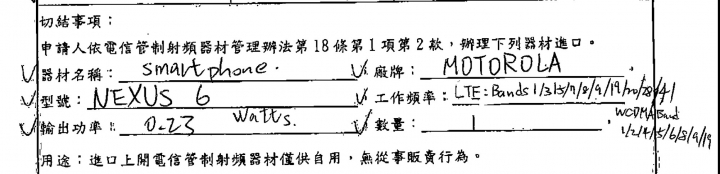 切結事項：
申請人依電信管制射頻器材管理辦法第18條第1項第2款，辦理下列器材進口。
✓器材名稱：smart phone. ✓廠牌：MOTOROLA
✓型號：NEXUS 6 ✓工作頻率：LTE: Bands 1/3/5/7/8/9/19/20/28/41
WCDMA Band
✓輸出功率：0.23 Watts. ✓數量：1
1/2/4/5/6/8/9/19
用途：進口上開電信管制射頻器材僅供自用，無從事販賣行為。